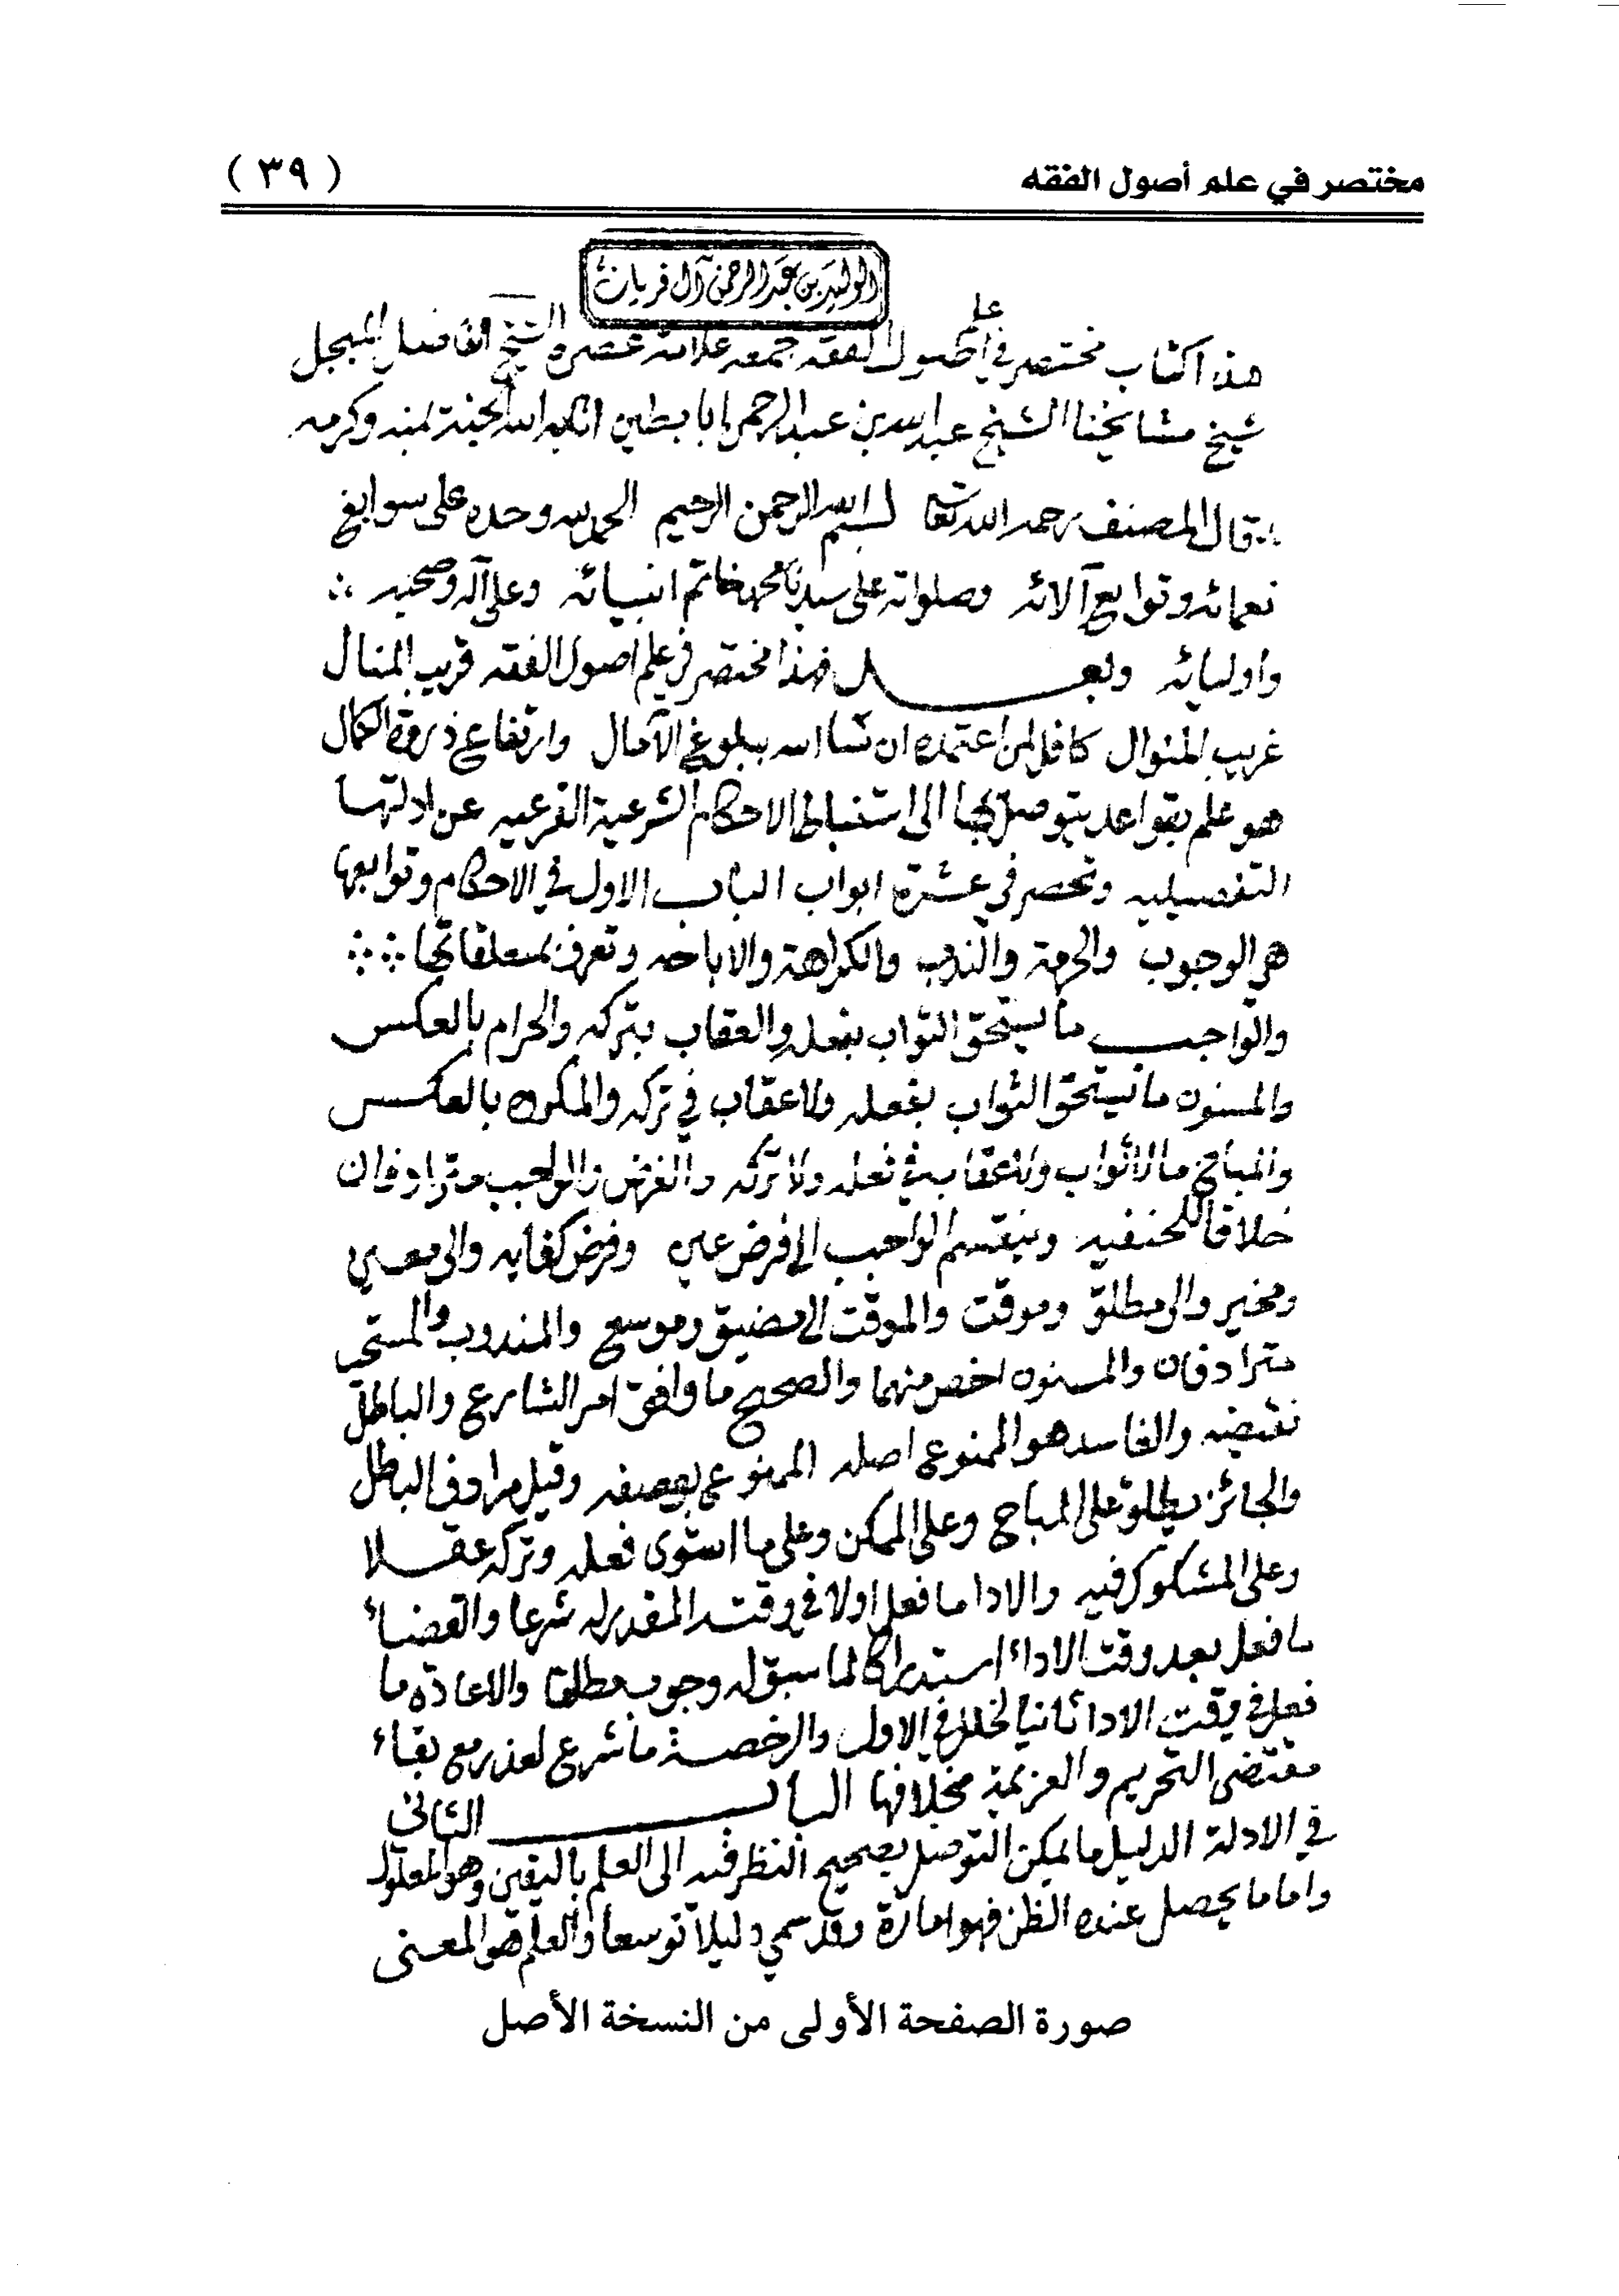 مختصر في علم أصول الفقه
( ٣٩ )
الوليد بن عبد الرحمن آل فريان
علم
هذا كتاب مختصر في اصول الفقه جمعه علامة عصره الشيخ الفاضل المبجل
شيخ مشايخنا الشيخ عبد الله بن عبد الرحمن ابا بطين اثابه الله الجنة بمنه وكرمه
قال المصنف رحمه الله تعالى بسم الله الرحمن الرحيم الحمد لله وحده على سوابغ
نعمائه وتوابع آلائه وصلواته على سيدنا محمد خاتم انبيائه وعلى آله وصحبه
واوليائه وبعد فهذا مختصر في علم اصول الفقه قريب المنال
غريب المنوال كافل لمن اعتمده ان شا الله ببلوغ الآمال وارتفاع ذروة الكمال
هو علم بقواعد يتوصل بها الى استنباط الاحكام الشرعية الفرعيه عن ادلتها
التفصيليه وتحصر في عشرة ابواب الباب الاول في الاحكام وتوابعها
هي الوجوب والحرمة والندب والكراهة والاباحه وتعرف بمتعلقاتها
والواجب ما يستحق الثواب بفعله والعقاب بتركه والحرام بالعكس
والمسنون ما يستحق الثواب بفعله ولا عقاب في تركه والمكروه بالعكس
والمباح ما لا ثواب ولا عقاب في فعله ولا تركه والفرض والواجب مترادفان
خلافا للحنفيه وينقسم الواجب الى فرض عين وفرض كفايه والى معين
ومخير والى مطلق وموقت والموقت الى مضيق وموسع والمندوب والمستحب
مترادفان والمسنون اخص منهما والصحيح ما وافق امر الشارع والباطل
نقيضه والفاسد هو الممنوع اصله الممنوع بوصفه وقيل مرادف الباطل
والجائز يطلق على المباح وعلى الممكن وعلى ما استوى فعله وتركه عقلا
وعلى المشكوك فيه والادا ما فعل اولا في وقته المقدر له شرعا والقضاء
ما فعل بعد وقت الاداء استدراكا لما سبق له وجوب مطلقا والاعادة ما
فعل في وقت الادا ثانيا لخلل في الاول والرخصة ما شرع لعذر مع بقاء
مقتضى التحريم والعزيمة بخلافها الباب الثاني
في الادلة الدليل ما يمكن التوصل بصحيح النظر فيه الى العلم باليقين وهو المعلول
واما ما يحصل عنده الظن فهو امارة وقد سمي دليلا توسعا والعلم هو المعنى
صورة الصفحة الأولى من النسخة الأصل